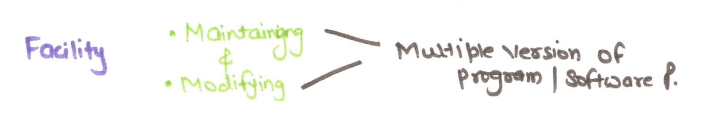 Facility
• Maintaining
&
• Modifying
Multiple version of
program | Software P.